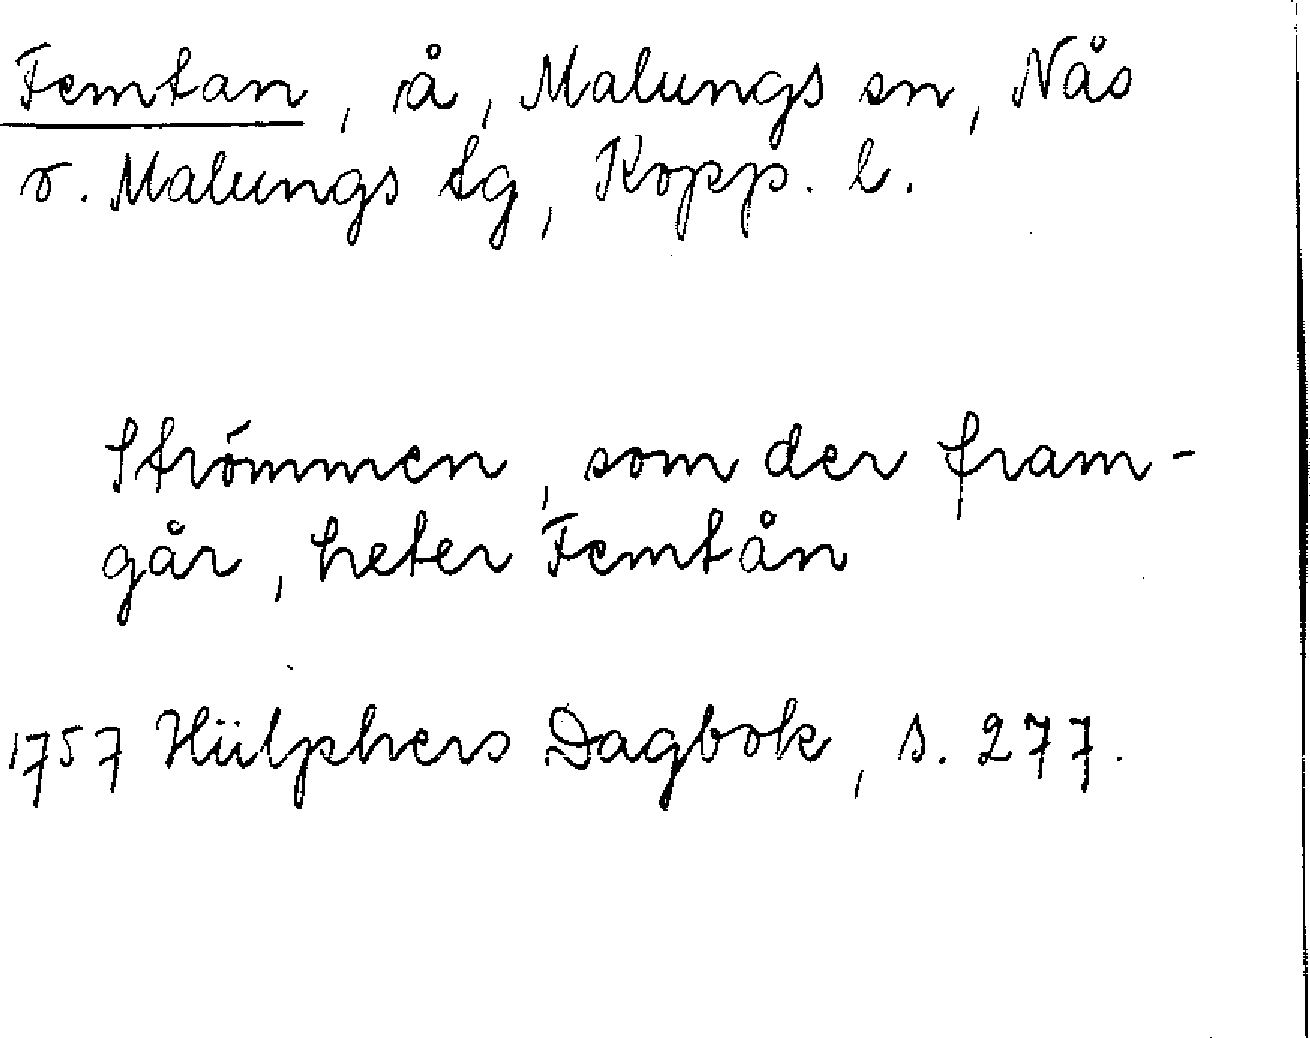 Femtan, å, Malungs sn, Nås
o. Malungs tg, Kopp. l.
Strömmen, som der fram-
går, heter Femtån
1757 Hülphers Dagbok, s. 277.